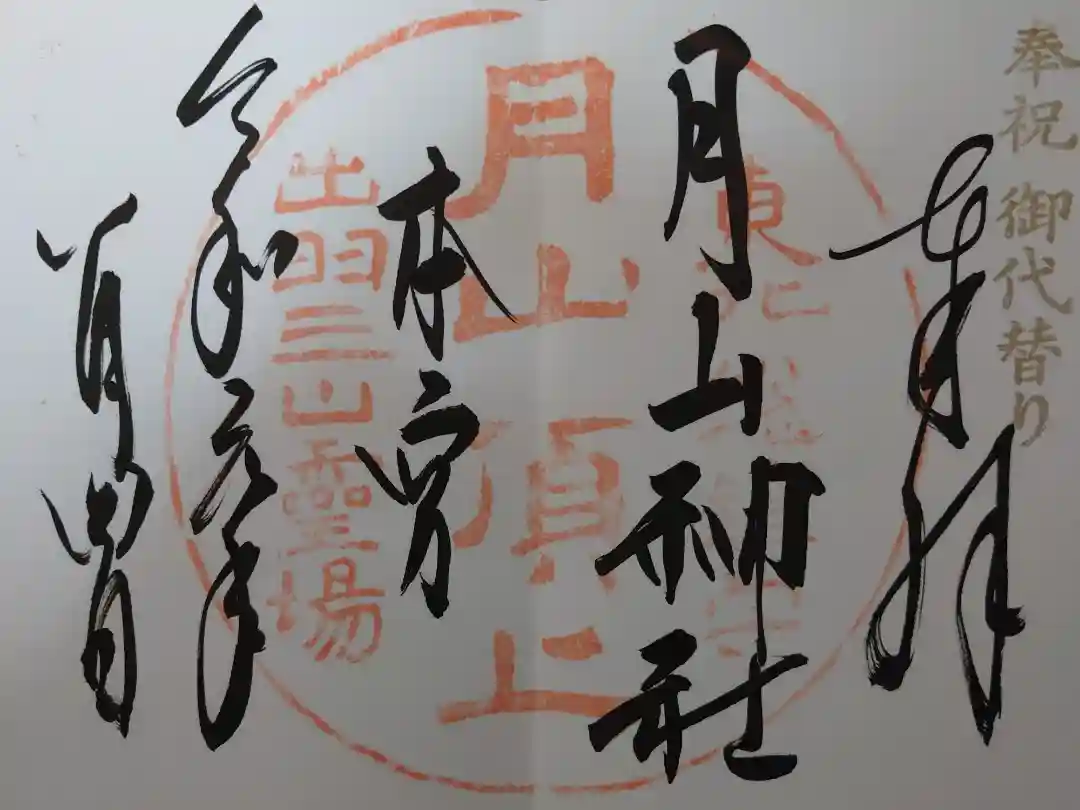 奉祝 御代替り
奉拝
月山神社
本宮
令和元年
八月
東北
月山頂上
出羽三山霊場